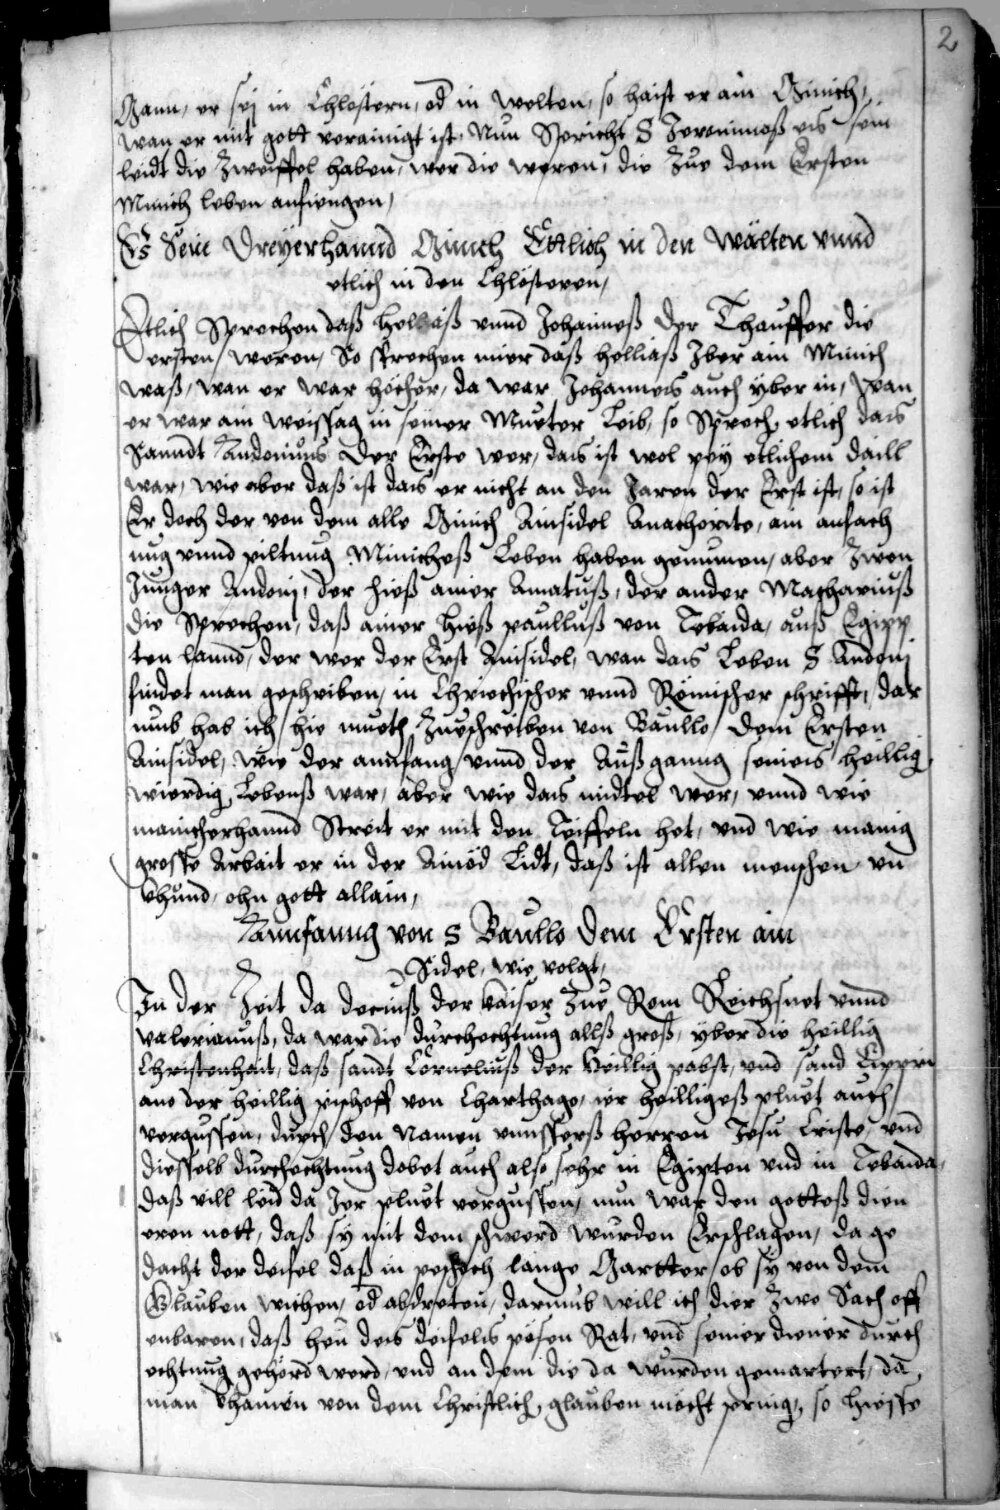 2
Mann, er sej in Chlöstern, od in welten, so haist er ain Münich,
wan er mit gott verainigt ist, Nun Sprichs S Jeronimoß eis sein
leidt die Zweiffel haben, wer die weren, die Zue dem Ersten
Münich leben anfiengen,
Es Sein Dreyerhannd Münch Ettlich in den wälten vnnd
etlich in den Chlösteren,
Etlich Sprechen daß Helliaß vnnd Johanneß Der Thauffer die
ersten, weren, So sprechen mier daß helliaß Jber ain Münich
waß, wan er war höcher, da war Johanneis auch yber in, wan
er war ain weissag in seiner Mueter Leib, so Sprech etlich dais
Sanndt Andonius Der Erste wer, dais ist wol pey etlichem daill
war, wie aber daß ist dais er nicht an den Jaren der Erst ist, so ist
Er doch der von dem alle Münich Ainsidel Anachorite, ain anfach
nug vnnd piltnug Minicheß Leben haben genumen, aber Zwen
Junger Andonj, der hieß ainer Amatuß, der ander Machariuß
die Sprechen, daß ainer hieß paulluß von Tebaida, auß Egipp
ten lannd, der wer der Erst Ainsidel, wan dais Leben S Andonj
findet man geschriben, in Chriechischer vnnd Römischer schrifft, dar
umb hab ich hie mueth Zueschreiben von Baullo dem Ersten
Ainsidel, wie der annfang vnnd der Außganng seineis heillig
wierdig Lebenß war, aber wie dais midtel wer, vnnd wie
mainicherhannd Streit er mit den Teiffeln het, vnd wie manig
grosse Arbait er in der Ainöd Lidt, daß ist allen menschen vn
khund, ohn gott allain,
Annfanng von S Baullo Dem Ersten ain
Sidel, wie volgt,
In der Zeit da deciuß der kaiser Zue Rom Reichsnet vnnd
valerianuß, da war die durchechtung allß groß, yber die heillig
Christenhait, daß sandt Corneliuß der Heillig pabst, vnd sand Cippri
ano der heillig pischoff von Charthago, ier heilligeß pluet auch
vergussen, durch den Namen vnnsserß herren Jesu Criste, vnd
diesselb durchechtung dobet auch also sehr in Egipten vnd in Tebaida,
daß vill leid da Jer pluet vergussen, nun war den gotteß dien
eren nott, daß sy mit dem schwerd wurden Erschlagen, da ge
dacht der deifel daß in peschech lange Martter, ob sy von dem
Glauben wichen, od abdreten, darumb will ich dier Zwo Sach off
enbaren, daß hen deis deifelis pösen Rat, vnd seiner diener durch
echtung gehörd werd, vnd an dem die da wurden gemartert, da
man khainen von dem Christlich, glauben mocht pringen, so hiesse